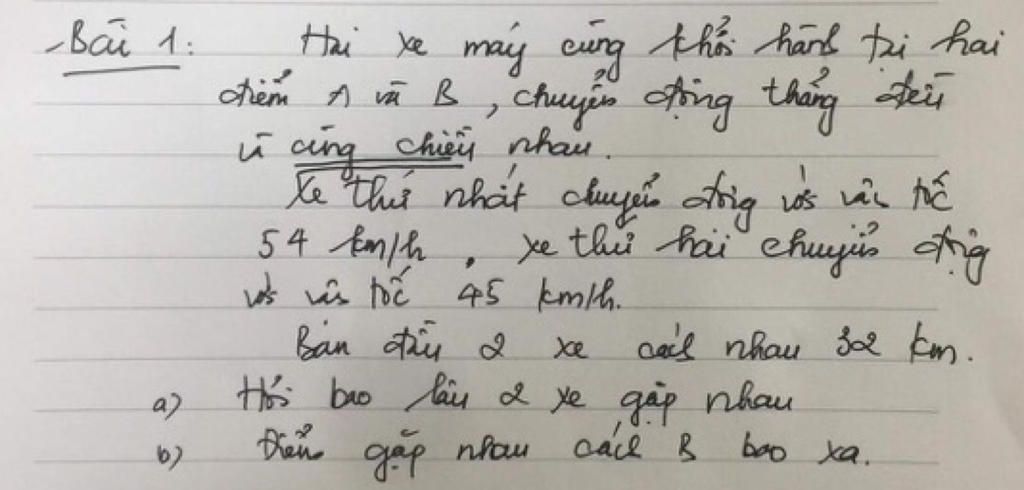 Bài 1: Hai xe máy cùng khởi hành tại hai
điểm A và B, chuyển động thẳng đều
và cùng chiều nhau.
Xe thứ nhất chuyển động với vận tốc
54 km/h, xe thứ hai chuyển động
với vận tốc 45 km/h.
Ban đầu 2 xe cách nhau 32 km.
a) Hỏi bao lâu 2 xe gặp nhau
b) Điểm gặp nhau cách B bao xa.